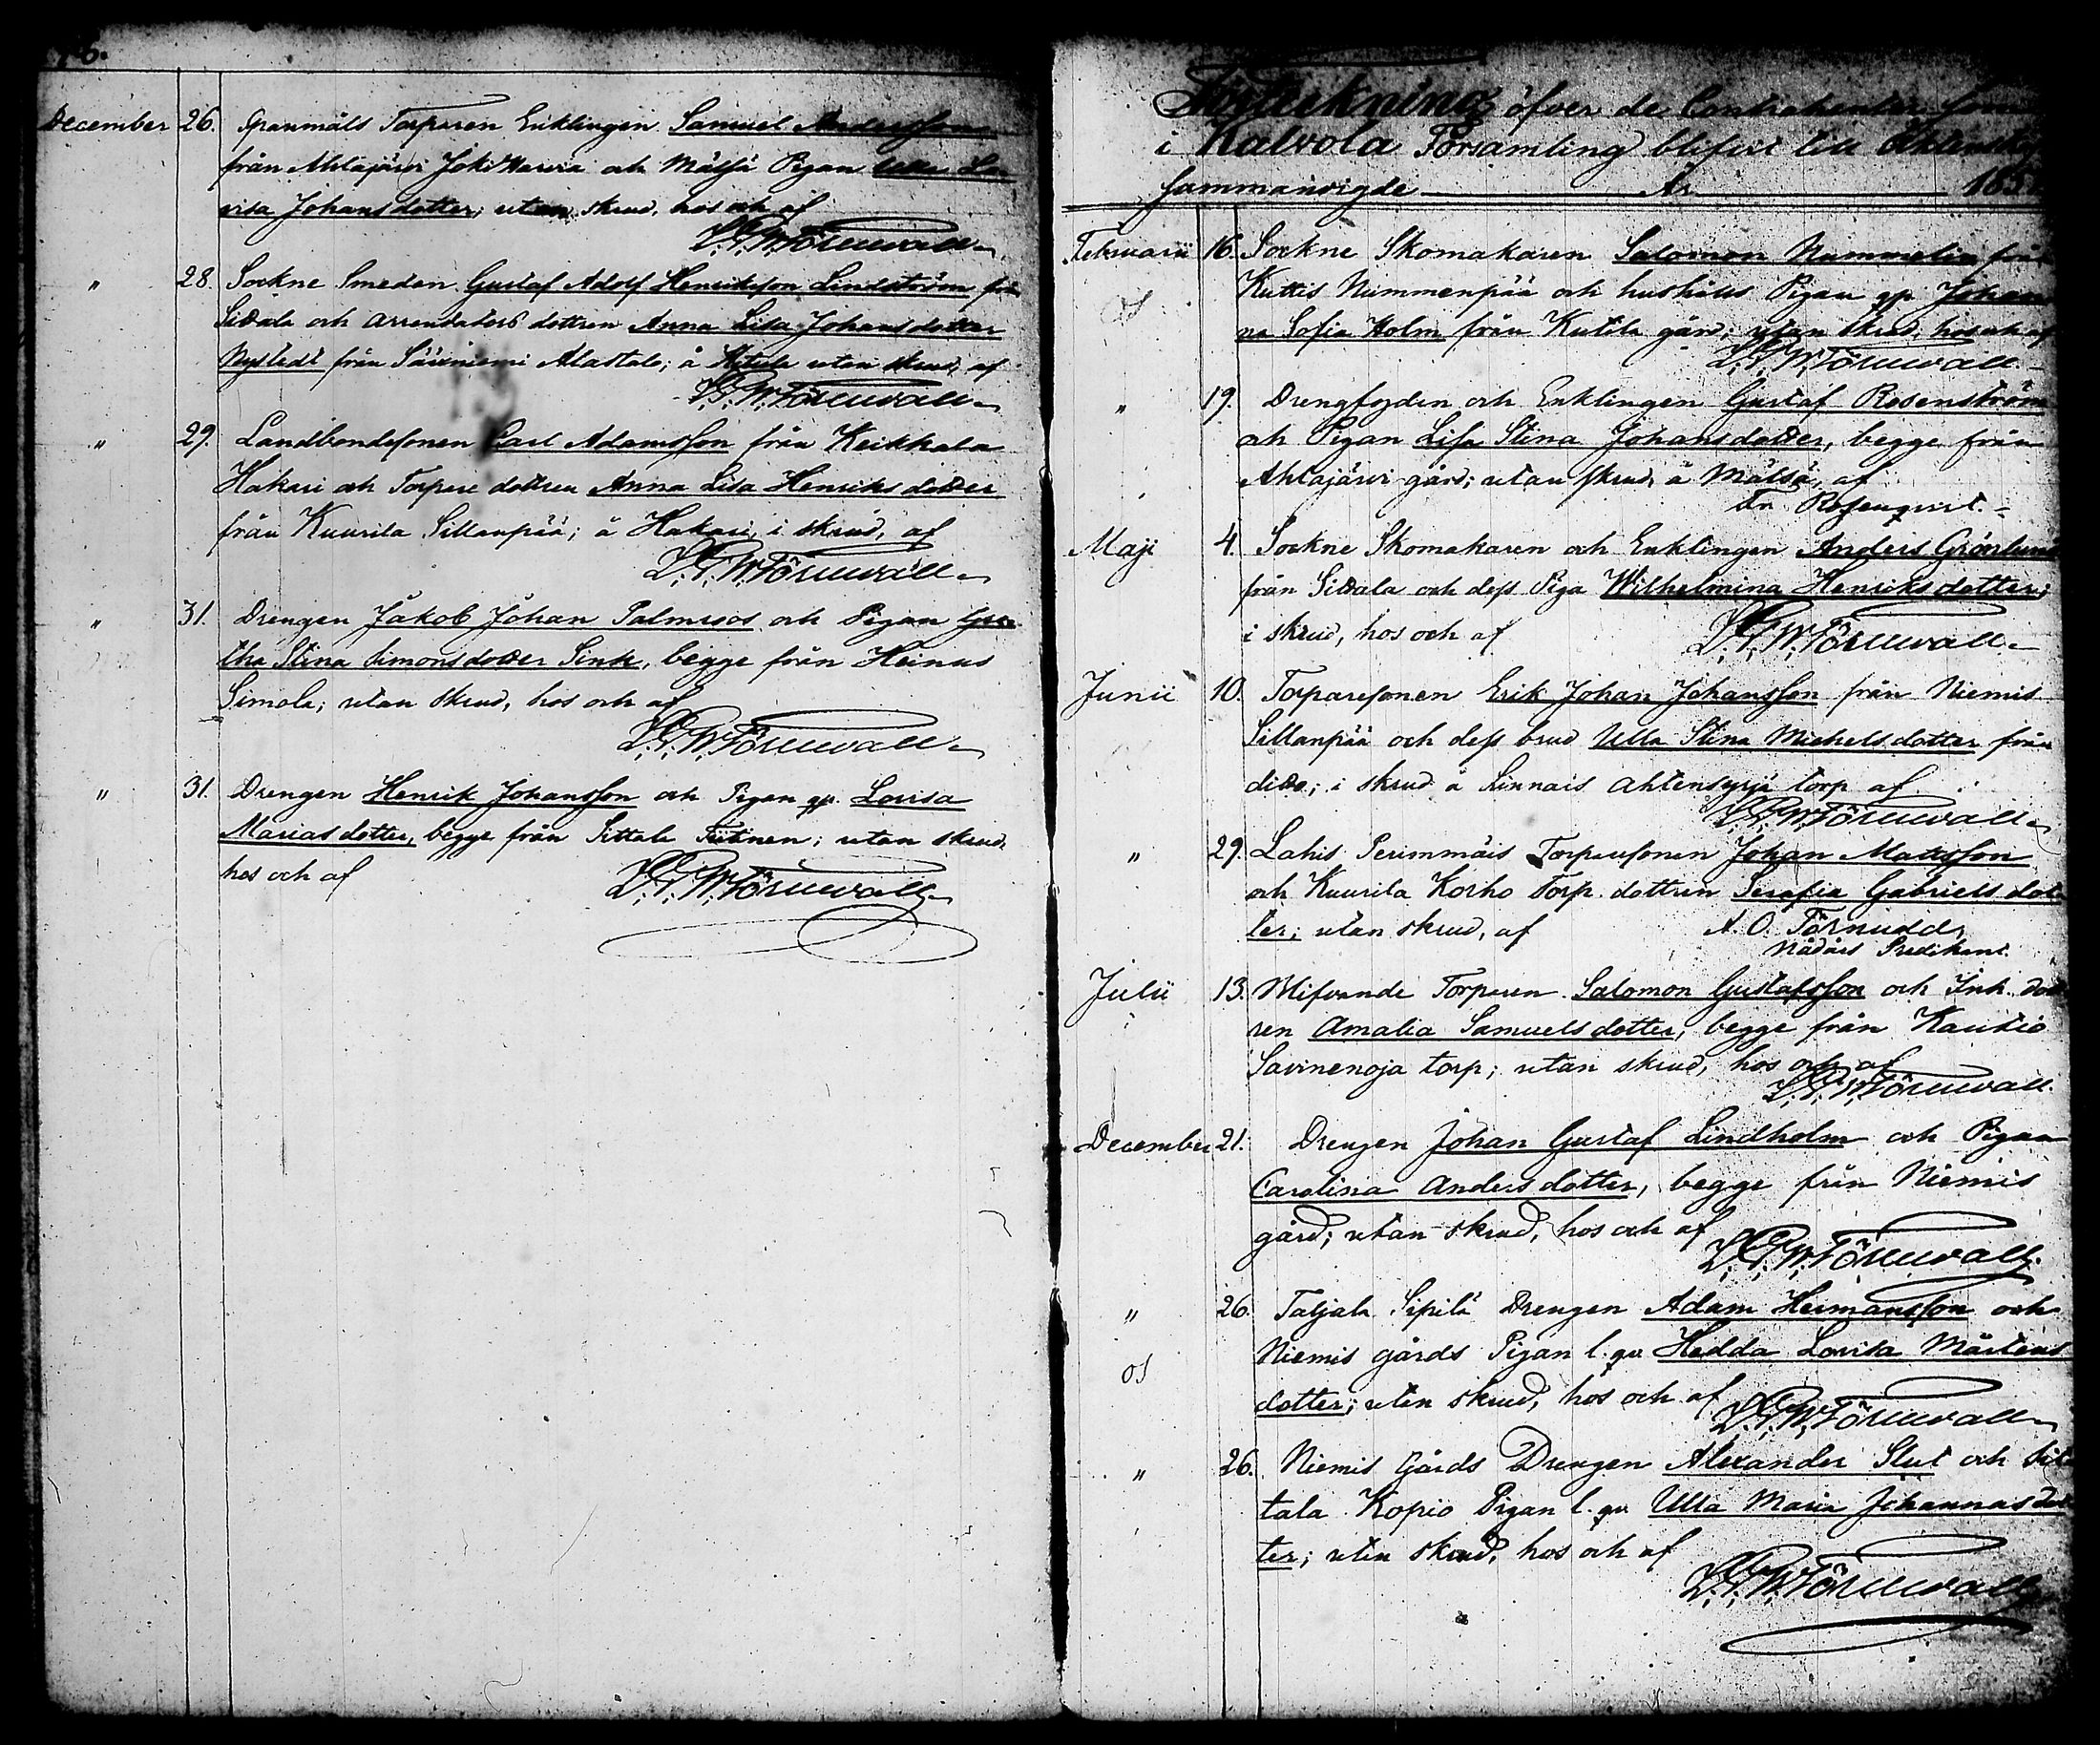 December 26. Torparen Enklingen Samuel Andersson
från Ahlajärvi Joki Harvia och Mälsä Pigan Ulla Lo
visa Johansdotter; utan skrud, hos och af
L.G.W. Törnwall
" 28. Sockne Smeden Gustaf Adolf Henriksson Lindström från
Sittala och arrendators dottren Anna Lisa Johansdotter
Nystedt från Sääxniemi Alastalo; å utan skrud, af
L.G.W. Törnwall
" 29. Landbondesonen Carl Adamsson från Keikkala
Hakari och Torpare dottren Anna Lisa Henriksdotter
från Kuurila Sillanpää; å Hakari, i skrud, af
L.G.W. Törnwall
" 31. Drengen Jakob Johan Palmroos och Pigan Gre
tha Stina Simonsdotter Sink, begge från Heinus
Simola; utan skrud, hos och af
L.G.W. Törnwall
" 31. Drengen Henrik Johansson och Pigan qp. Lovisa
Mariasdotter, begge från Sittala; utan skrud,
hos och af L.G.W. Törnwall
Förteckning öfver de Contrahenter som
i Kalvola Församling blifvit till Äktenskap
sammanvigde År 185
Februarii 16. Sockne Skomakaren Salomon Nummelin från
Kuttis Nummenpää och hushålls Pigan qp. Johan
na Sofia Holm från Kutila gård; utan skrud, hos och af
L.G.W. Törnwall
" 19. Drengfogden och Enklingen Gustaf Rosenström
och Pigan Lisa Stina Johansdotter, begge från
Ahlajärvi gård; utan skrud, å Mälsä, af
Fr. Rosenqvist.
Maji 4. Sockne Skomakaren och Enklingen Anders Grönlund
från Sittala och dess Piga Wilhelmina Henriksdotter;
i skrud, hos och af L.G.W. Törnwall
Junii 10. Torparesonen Erik Johan Johansson från Niemis
Sillanpää och dess brud Ulla Stina Michelsdotter från
dito; i skrud å Linnais torp af
L.G.W. Törnwall
" 29. Lahis Perimmäis Torparesonen Johan Mattsson
och Kuurila Korho Torp. dottren Serafia Gabrielsdot
ter; utan skrud, af A. O. Törnudd,
Nådårs Predikant.
Julii 13. Blifvande Torparen Salomon Gustafsson och Inh. dott
ren Amalia Samuelsdotter, begge från Kautio
Savinenoja torp; utan skrud, hos och af
L.G.W. Törnwall
December 21. Drengen Johan Gustaf Lindholm och Pigan
Carolina Andersdotter, begge från Niemis
gård; utan skrud, hos och af
L.G.W. Törnwall
" 26. Taljala Sipilä Drengen Adam Hermansson och
Niemis gårds Pigan l. qv. Hedda Lovisa Mårtens
dotter; utan skrud, hos och af
L.G.W. Törnwall
" 26. Niemis Gårds Drengen Alexander Slut och Sit
tala Kopio Pigan l. qv. Ulla Maria Johannasdot
ter; utan skrud, hos och af
L.G.W. Törnwall